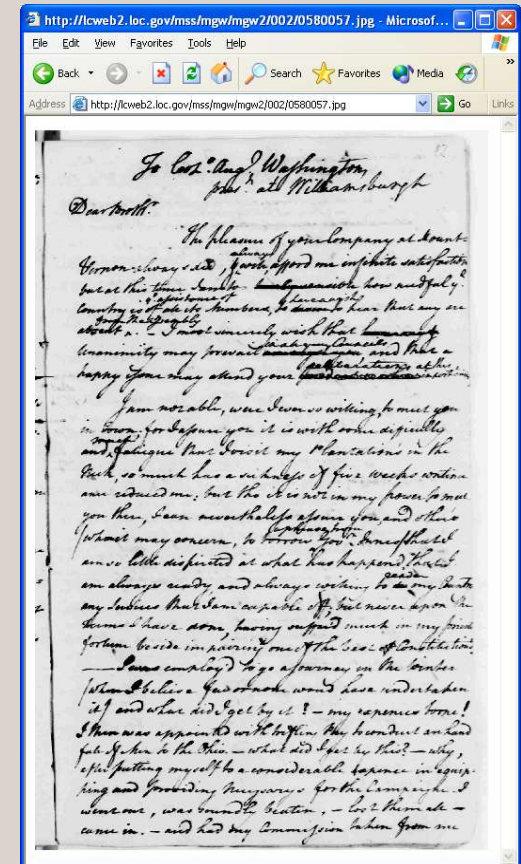 http://lcweb2.loc.gov/mss/mgw/mgw2/002/0580057.jpg - Microsof...
File Edit View Favorites Tools Help
Back Search Favorites Media
Address http://lcweb2.loc.gov/mss/mgw/mgw2/002/0580057.jpg Go Links
To Colo. Augn. Washington
at Williamsburgh
Dear Brothr.
The pleasure of your Company at Mount-
always
Vernon always did, & will, afford me infinite satisfaction
but at this time I am to how needful ye.
assistance of
Country is of all its Members, to hear that any are
absent. - I most sincerely wish that
Unanimity may prevail in all your Councils and that a
happy Issue may attend your
I am not able, were I ever so willing, to meet you
in Town, for I assure you it is with some difficulty
much
and fatigue that I visit my Plantations in the
Neck, so much has a sickness of five weeks contin
ance reduced me, but tho it is not in my power to meet
you there, I can nevertheless assure you, and others
(whom it may concern, to borrow Govr. Innes) that I
am so little dispirited at what has happend, that I
am always ready and always willing to do my Country
any Services that I am capable off; but never upon the
Terms I have done, having suffer'd much in my private
fortune beside impairing one of the best of Constitutions
- I was employ'd to go a journey in the Winter
(when I believe few or none would have undertaken
it) and what did I get by it? - my expences borne!
I then was appointed with trifling Pay to conduct an hand
full of Men to the Ohio. - what did I get by this? - why,
after putting myself to a considerable expence in equip-
ping and providing Necessarys for the Campaigne - I
went out, was soundly beaten, - lost them all -
came in. - and had my Commission taken from me